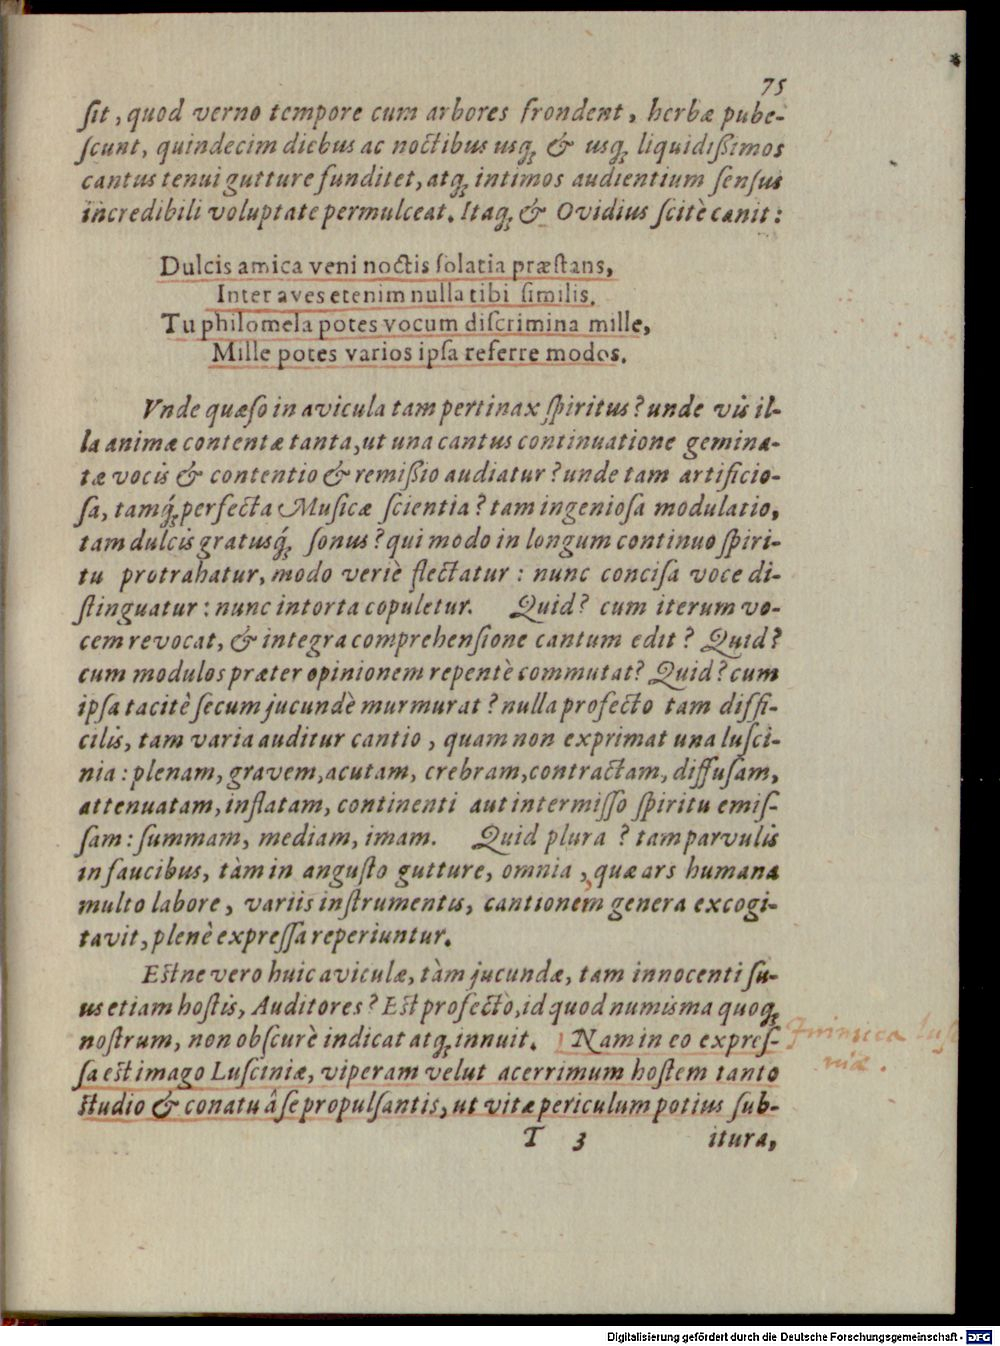 75
ſit, quod verno tempore cum arbores frondent, herbæ pube-
ſcunt, quindecim diebus ac noctibus usq; & usq; liquidißimos
cantus tenui gutture funditet, atq; intimos audientium ſenſus
incredibili voluptate permulceat. Itaq; & Ovidius ſcitè canit:
Dulcis amica veni noctis ſolatia præſtans,
Inter aves etenim nulla tibi ſimilis.
Tu philomela potes vocum diſcrimina mille,
Mille potes varios ipſa referre modos.
Vnde quæſo in avicula tam pertinax ſpiritus? unde vis il-
la animæ contentæ tanta, ut una cantus continuatione gemina-
tæ vocis & contentio & remißio audiatur? unde tam artificio-
ſa, tamq́; perfecta Muſicæ ſcientia? tam ingenioſa modulatio,
tam dulcis gratusq́; ſonus? qui modo in longum continuo ſpiri-
tu protrahatur, modo veriè flectatur: nunc conciſa voce di-
ſtinguatur: nunc intorta copuletur. Quid? cum iterum vo-
cem revocat, & integra comprehenſione cantum edit? Quid?
cum modulos præter opinionem repentè commutat? Quid? cum
ipſa tacitè ſecum jucundè murmurat? nulla profecto tam diffi-
cilis, tam varia auditur cantio, quam non exprimat una luſci-
nia: plenam, gravem, acutam, crebram, contractam, diffuſam,
attenuatam, inflatam, continenti aut intermiſſo ſpiritu emiſ-
ſam: ſummam, mediam, imam. Quid plura? tam parvulis
in faucibus, tàm in anguſto gutture, omnia, quæ ars humana
multo labore, variis inſtrumentis, cantionem genera excogi-
tavit, plenè expreſſa reperiuntur.
Eſtne vero huic aviculæ, tàm jucundæ, tam innocenti ſu-
us etiam hoſtis, Auditores? Eſt profectò, id quod numisma quoq;
noſtrum, non obſcurè indicat atq; innuit. Nam in eo expreſ-
ſa eſt imago Luſciniæ, viperam velut acerrimum hoſtem tanto
ſtudio & conatu â ſe propulſantis, ut vitæ periculum potius ſub-
T 3 itura,
Inimica Luſci
niæ.
Digitalisierung gefördert durch die Deutsche Forschungsgemeinschaft - DFG